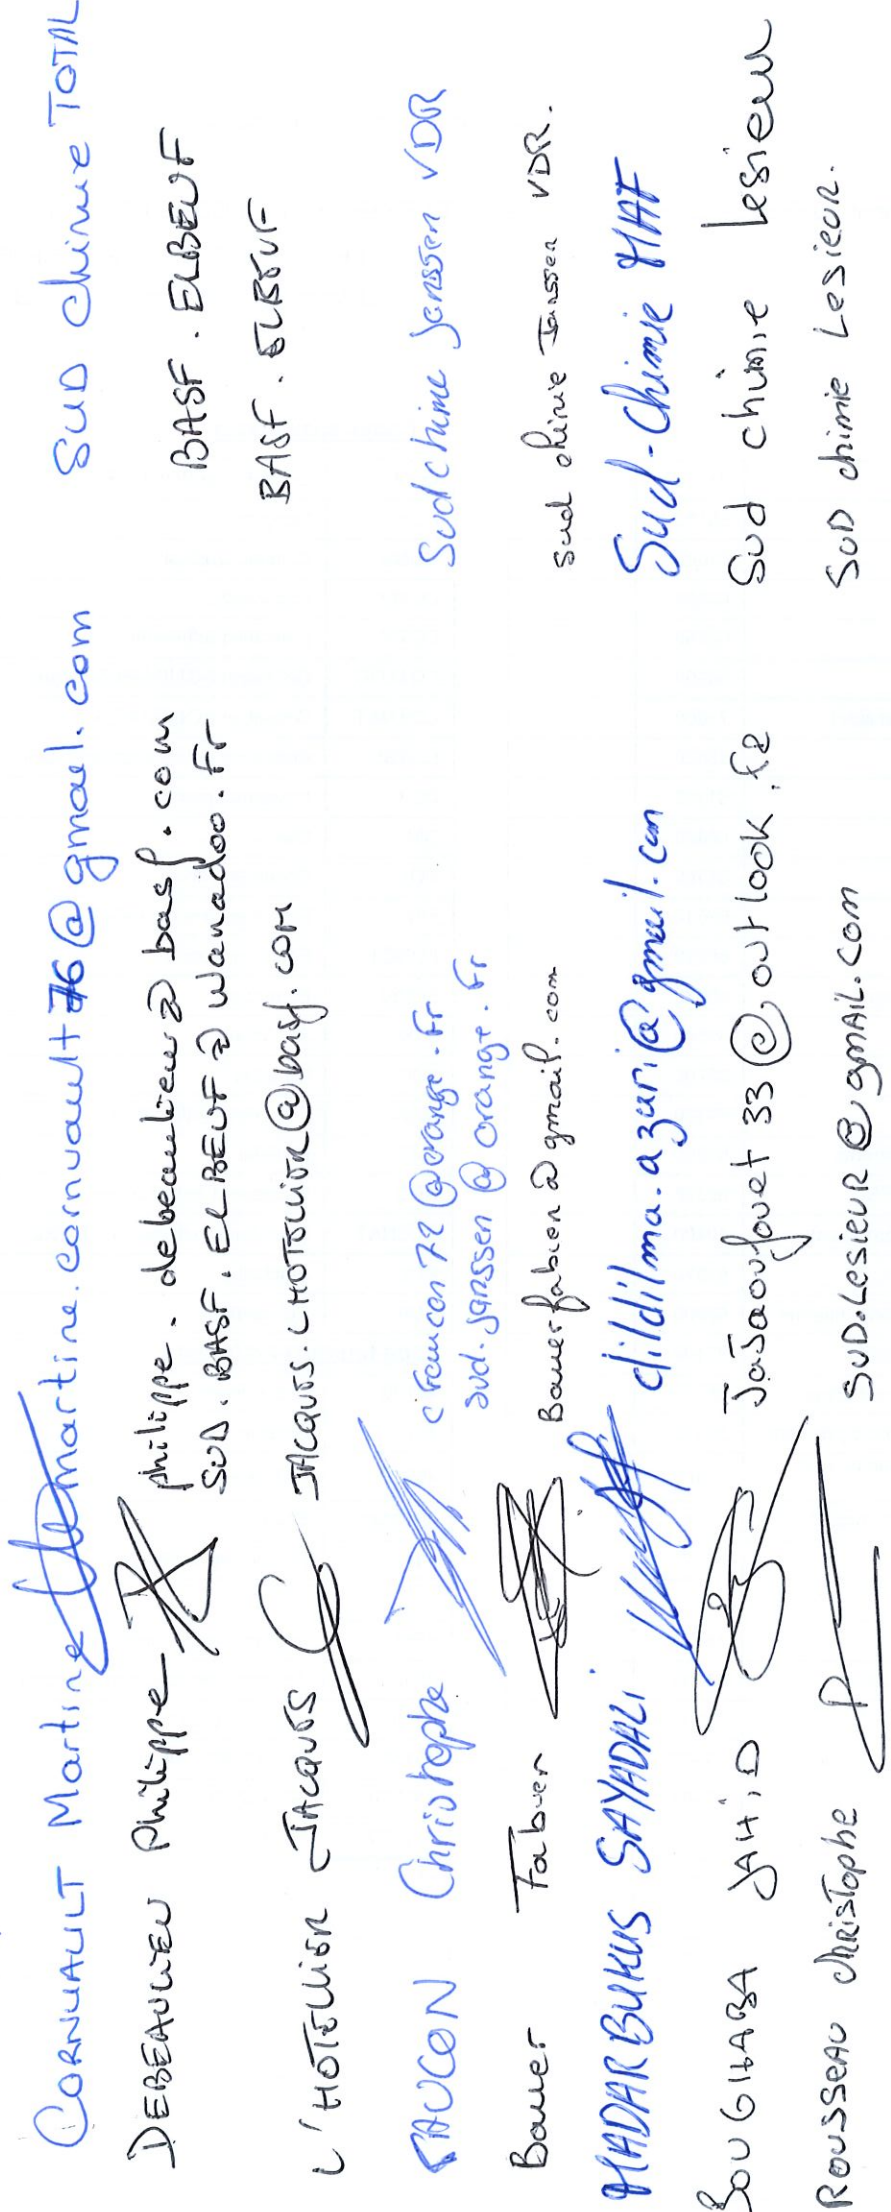 CORNUAULT Martine martine.cornuault76@gmail.com SUD chimie TOTAL
DEBEAULIEU Philippe philippe.debeaulieu@basf.com BASF.ELBEUF
SUD.BASF.ELBEUF@wanadoo.fr
L'HOTELLIER JACQUES JACQUES.LHOTELLIER@basf.com BASF.ELBEUF
FAUCON Christophe cfaucon72@orange.fr Sud chimie Janssen VDR
sud.janssen@orange.fr
Bauer Fabien Bauerfabien@gmail.com Sud chimie Janssen VDR.
MADARBUKUS SAYADALI dildilma.azuri@gmail.com Sud-Chimie MAF
JAHID outlook.fr Sud chimie Lesieur
ROUSSEAU christophe SUD.LESIEUR@GMAIL.com SUD chimie LESIEUR.